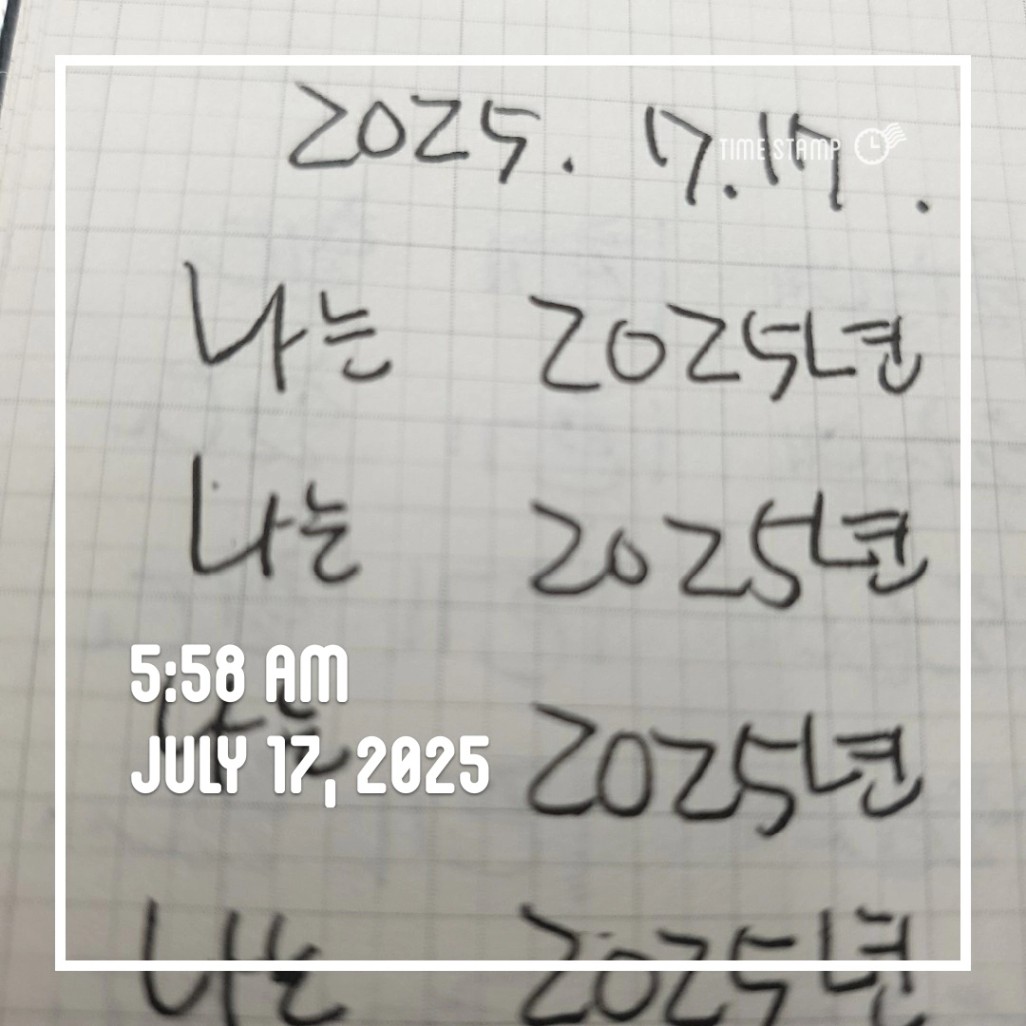 2025. 7.17.
TIME STAMP
나는 2025년
나는 2025년
5:58 AM
나는 2025년
JULY 17, 2025
나는 2025년